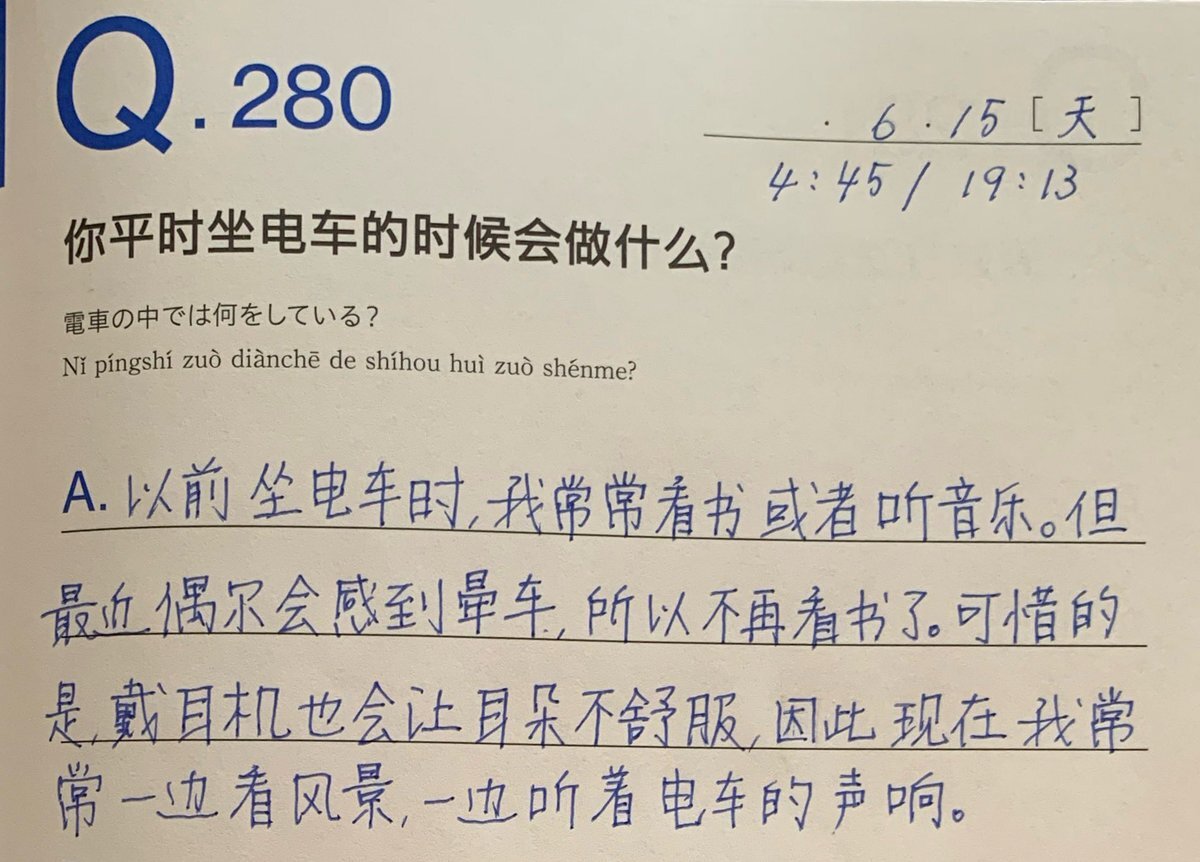 Q.280
· 6 · 15 [ 天 ]
4:45 / 19:13
你平时坐电车的时候会做什么?
電車の中では何をしている?
Nǐ píngshí zuò diànchē de shíhou huì zuò shénme?
A. 以前坐电车时,我常常看书或者听音乐。但
最近偶尔会感到晕车,所以不再看书了。可惜的
是,戴耳机也会让耳朵不舒服,因此现在我常
常一边看风景,一边听着电车的声响。